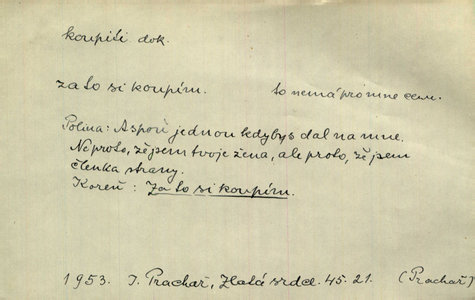 koupiti dok.
za to si koupím. to nemá pro mne cenu.
Polina: Aspoň jednou kdybys dal na mne.
Ne proto, že jsem tvoje žena, ale proto, že jsem
členka strany.
Koreň: Za to si koupím.
1953. I. Prachař, Zlatá srdce. 45. 21. (Prachař)